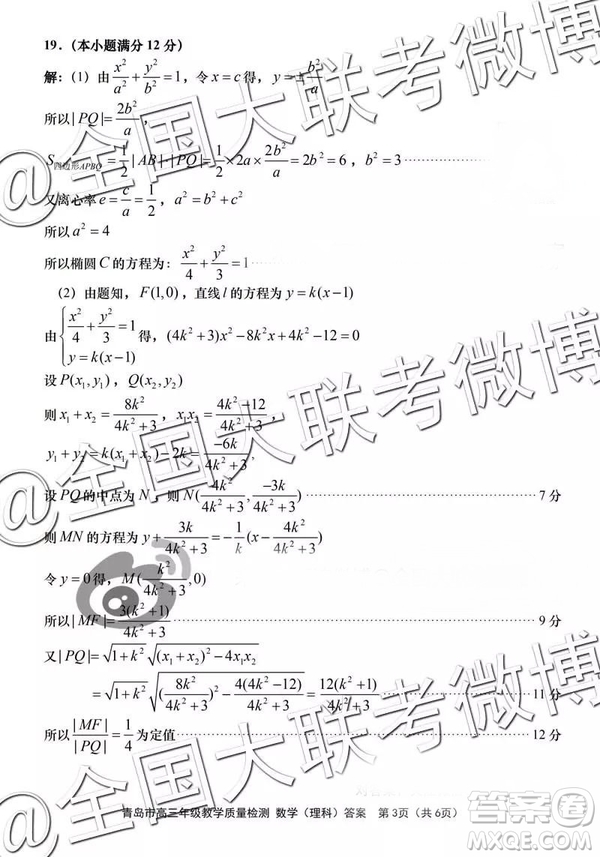 19．（本小题满分 12 分）
解：（1）由 x²/a² + y²/b² = 1，令 x = c 得，y = ± b²/a
所以 | PQ | = 2b²/a，
S四边形APBQ = 1/2 | AB |·| PQ | = 1/2 × 2a × 2b²/a = 2b² = 6，b² = 3
又离心率 e = c/a = 1/2，a² = b² + c²
所以 a² = 4
所以椭圆 C 的方程为：x²/4 + y²/3 = 1
（2）由题知，F(1,0)，直线 l 的方程为 y = k(x−1)
由 { x²/4 + y²/3 = 1
y = k(x−1) 得，(4k² + 3)x² − 8k²x + 4k² − 12 = 0
设 P(x₁, y₁)，Q(x₂, y₂)
则 x₁ + x₂ = 8k²/(4k² + 3)，x₁x₂ = (4k² − 12)/(4k² + 3)，
y₁ + y₂ = k(x₁ + x₂) − 2k = −6k/(4k² + 3)，
设 PQ 的中点为 N，则 N(4k²/(4k² + 3), −3k/(4k² + 3)) 7 分
则 MN 的方程为 y + 3k/(4k² + 3) = −1/k (x − 4k²/(4k² + 3))
令 y = 0 得，M(k²/(4k² + 3), 0)
所以 | MF | = 3(k² + 1)/(4k² + 3) 9 分
又 | PQ | = √(1 + k²) √((x₁ + x₂)² − 4x₁x₂)
= √(1 + k²) √((8k²/(4k² + 3))² − 4(4k² − 12)/(4k² + 3)) = 12(k² + 1)/(4k² + 3) 11 分
所以 | MF |/| PQ | = 1/4 为定值 12 分
青岛市高三年级教学质量检测 数学（理科）答案 第 3页（共 6页）
@全国大联考微博
@全国大联考微博
@全国大联考微博